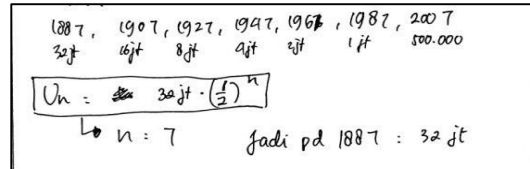 1887, 1907, 1927, 1947, 1967, 1987, 2007
32jt 16jt 8jt 4jt 2jt 1jt 500.000
Un = 32 jt · (1/2)^n
↳ n = 7 Jadi pd 1887 : 32 jt